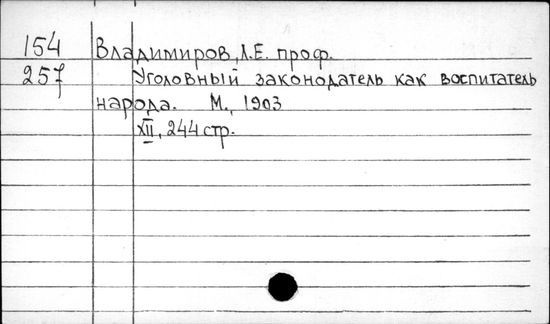 154 Владимиров, Л.Е. проф.
257 Уголовный законодатель как воспитатель
народа. М., 1903
XII, 244 стр.